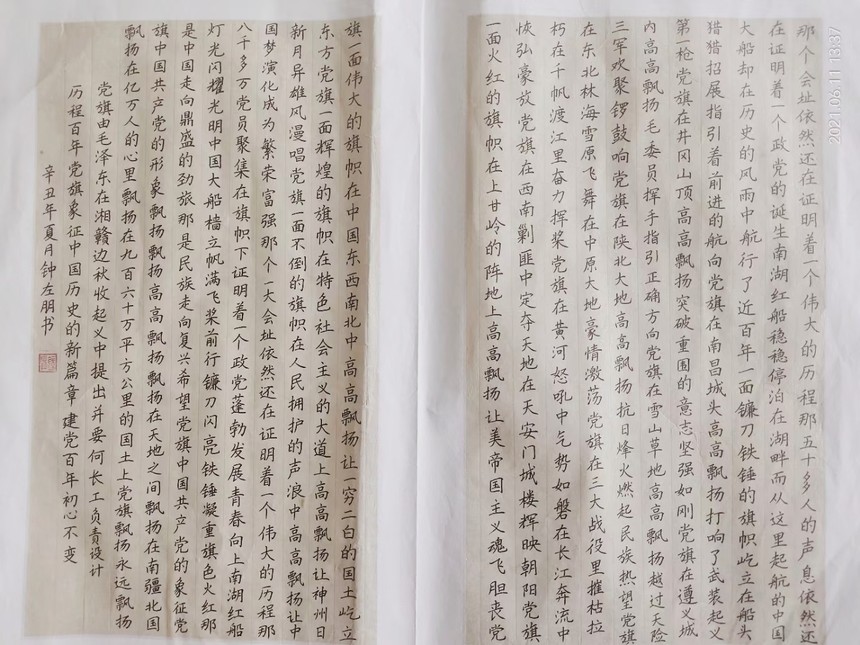 那个会址依然还在证明着一个伟大的历程那五十多人的声息依然还
在证明着一个政党的诞生南湖红船稳稳停泊在湖畔而从这里起航的中国
大船却在历史的风雨中航行了近百年一面镰刀铁锤的旗帜屹立在船头
猎猎招展指引着前进的航向党旗在南昌城头高高飘扬打响了武装起义
第一枪党旗在井冈山顶高高飘扬突破重围的意志坚强如刚党旗在遵义城
内高高飘扬毛委员挥手指引正确方向党旗在雪山草地高高飘扬越过天险
三军欢聚锣鼓响党旗在陕北大地高高飘扬抗日烽火燃起民族热望党旗
在东北林海雪原飞舞在中原大地豪情激荡党旗在三大战役里摧枯拉
朽在千帆渡江里奋力挥桨党旗在黄河怒吼中气势如磐在长江奔流中
恢弘豪放党旗在西南剿匪中定夺天地在天安门城楼辉映朝阳党旗
一面火红的旗帜在上甘岭的阵地上高高飘扬让美帝国主义魂飞胆丧党
旗一面伟大的旗帜在中国东西南北中高高飘扬让一穷二白的国土屹立
东方党旗一面辉煌的旗帜在特色社会主义的大道上高高飘扬让神州日
新月异雄风漫唱党旗一面不倒的旗帜在人民拥护的声浪中高高飘扬让中
国梦演化成为繁荣富强那个一大会址依然还在证明着一个伟大的历程那
八千多万党员聚集在旗帜下证明着一个政党蓬勃发展青春向上南湖红船
灯光闪耀光明中国大船樯立帆满飞桨前行镰刀闪亮铁锤凝重旗色火红那
是中国走向鼎盛的劲旅那是民族走向复兴希望党旗中国共产党的象征党
旗中国共产党的形象飘扬飘扬高高飘扬飘扬在天地之间飘扬在南疆北国
飘扬在亿万人的心里飘扬在九百六十万平方公里的国土上党旗飘扬永远飘扬
党旗由毛泽东在湘赣边秋收起义中提出并要何长工负责设计
历程百年党旗象征中国历史的新篇章建党百年初心不变
辛丑年夏月钟左朋书
2021.06.11 13:37